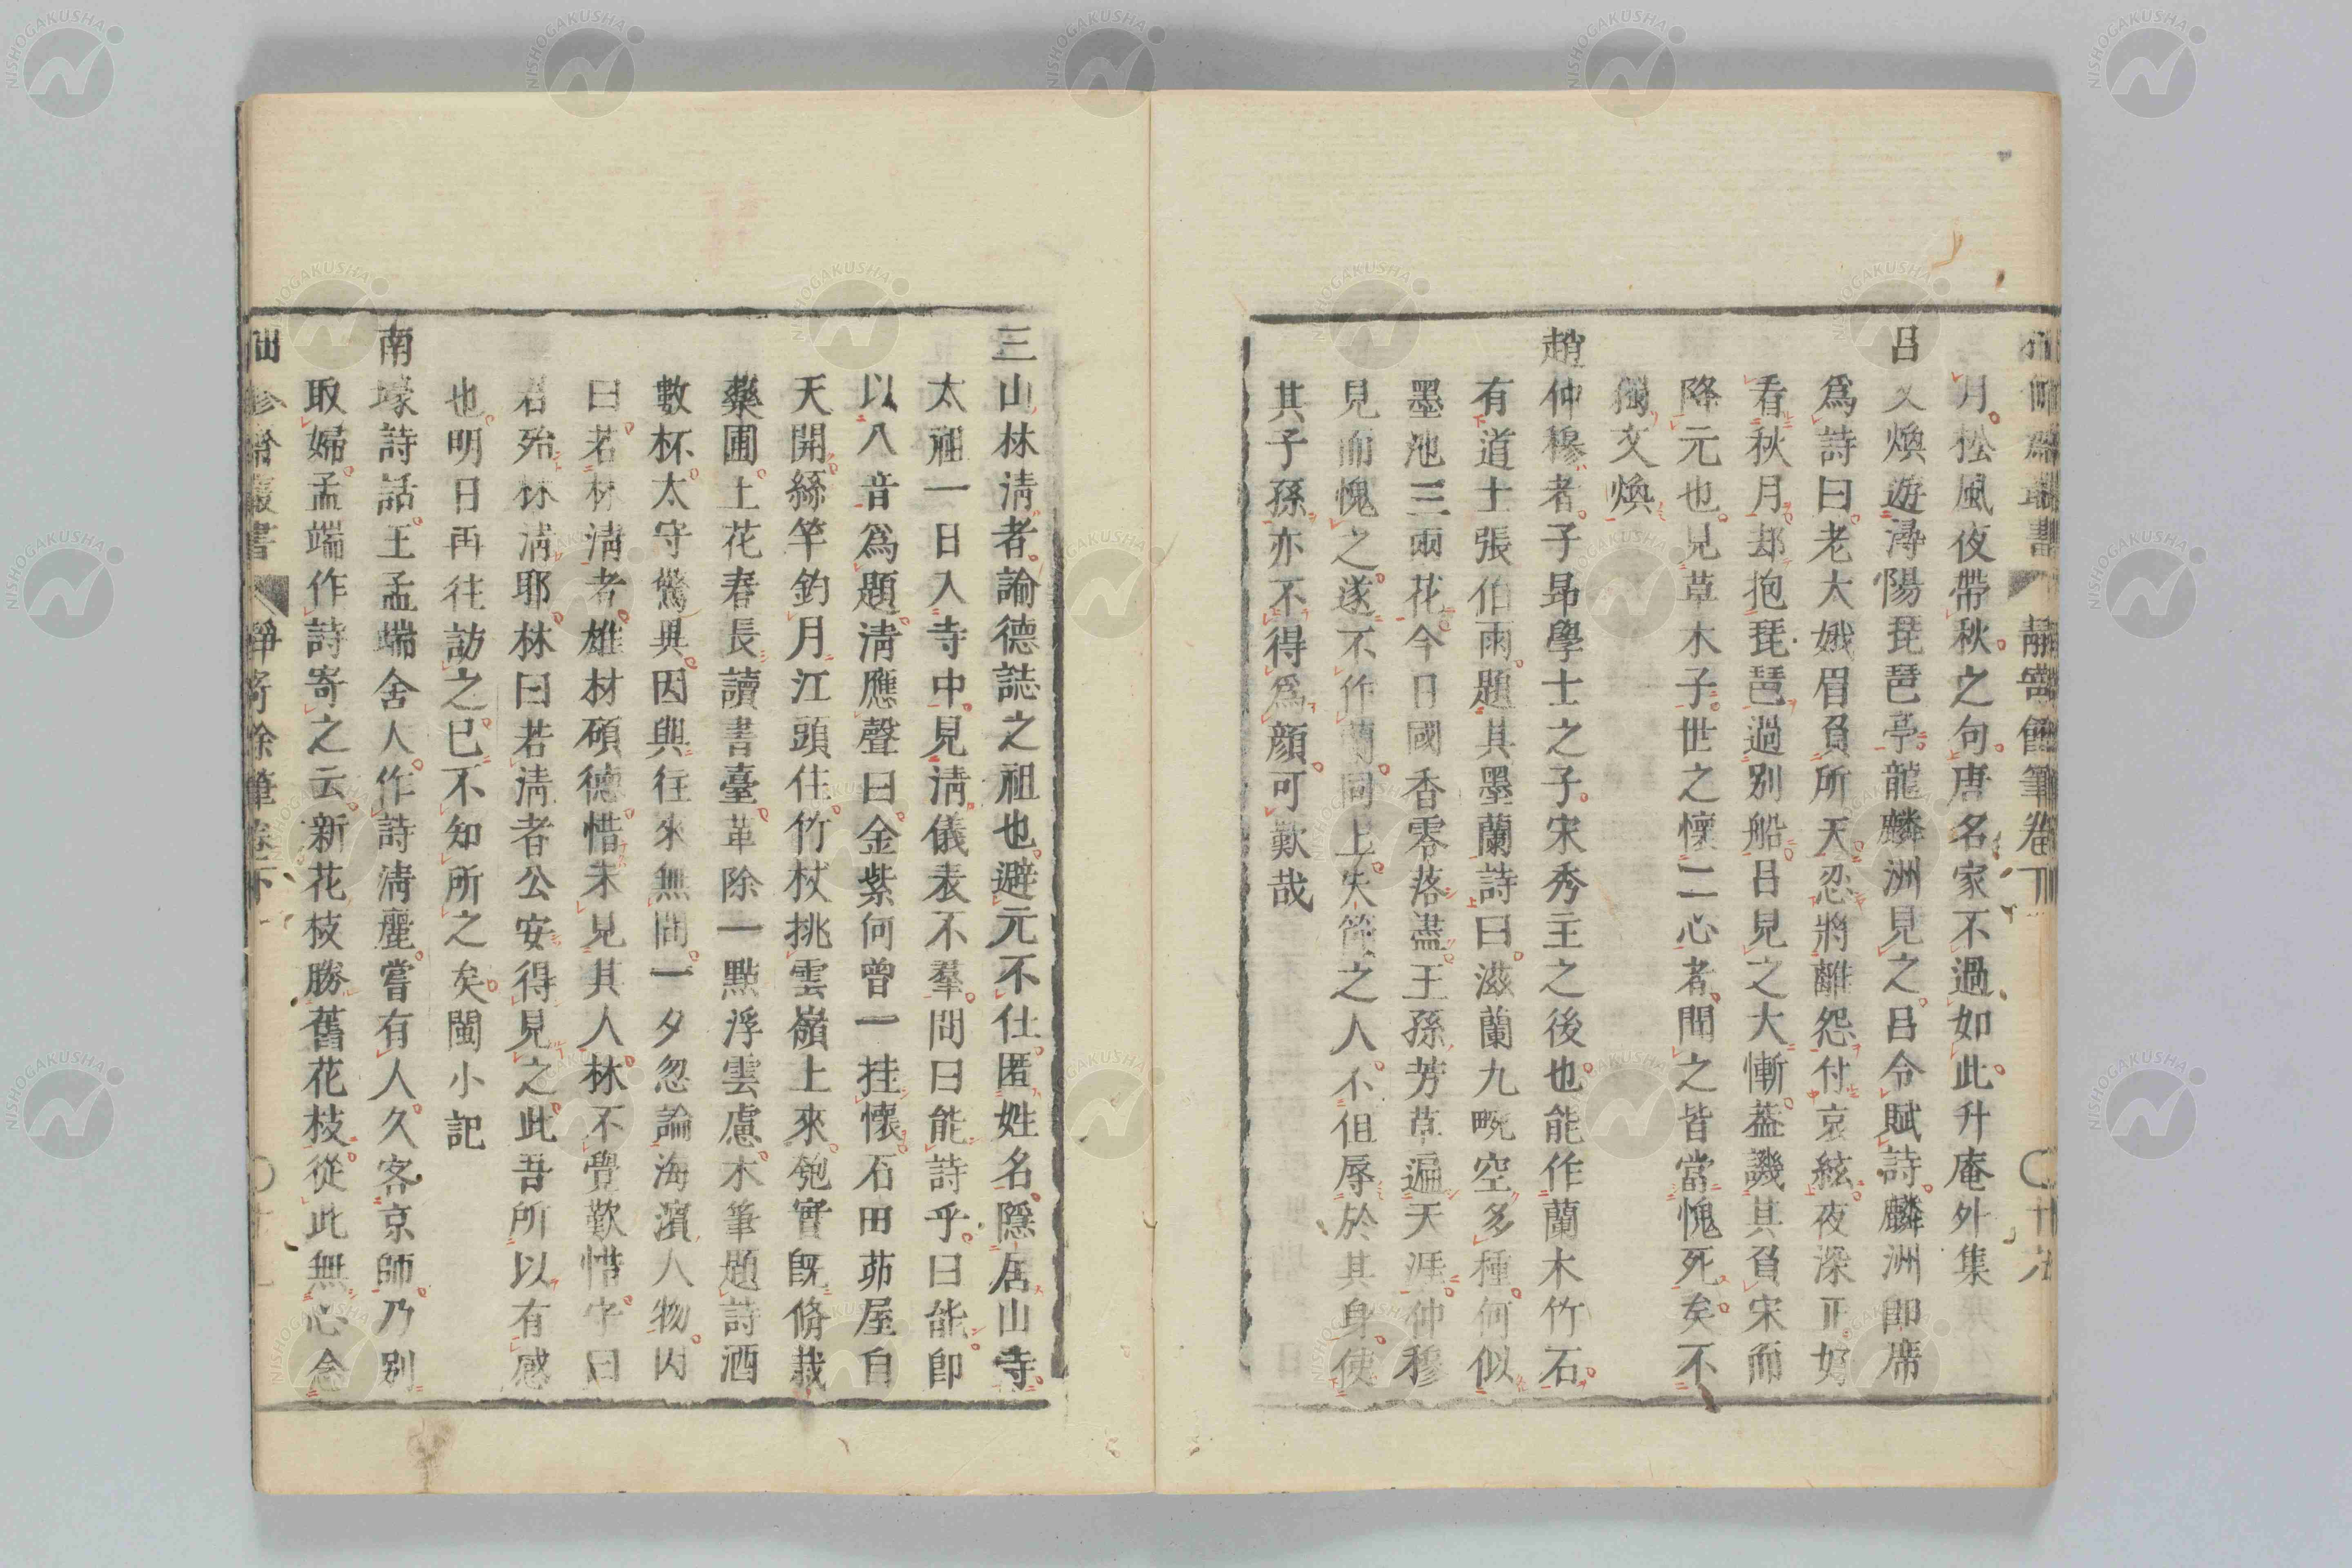 月松風夜帶秋之句唐名家不過如此升庵外集
呂文煥遊潯陽琵琶亭龍麟洲見之呂令賦詩麟洲卽席
爲詩曰老大娥眉負所天忍將離怨付哀絃夜深正好
看秋月却抱琵琶過別船呂見之大慚蓋譏其負宋而
降元也見草木子世之懷二心者聞之皆當愧死矣不
獨文煥
趙仲穆者子昻學士之子宋秀王之後也能作蘭木竹石
有道士張伯雨題其墨蘭詩曰滋蘭九畹空多種何似
墨池三兩花今日國香零落盡王孫芳草遍天涯仲穆
見而愧之遂不作蘭同上失節之人不但辱於其身使
其子孫亦不得爲顔可歎哉
靜寄餘筆卷下
三山林淸者諭德誌之祖也避元不仕匿姓名隱居山寺
太祖一日入寺中見淸儀表不羣問曰能詩乎曰能卽
以八音爲題淸應聲曰金紫何曾一挂懷石田茆屋自
天開絲竿釣月江頭住竹杖挑雲嶺上來匏實旣脩栽
藥圃土花春長讀書臺革除一點浮雲慮木筆題詩酒
數杯太守驚異因與往來無間一夕忽論海濵人物因
曰若林淸者雄材碩德惜未見其人林不覺歎惜守曰
君殆林淸耶林曰若淸者公安得見之此吾所以有感
也明日再往訪之已不知所之矣閩小記
南壕詩話王孟端舍人作詩淸麗嘗有人久客京師乃別
取婦孟端作詩寄之云新花枝勝舊花枝從此無心念
叢書 靜寄餘筆卷下